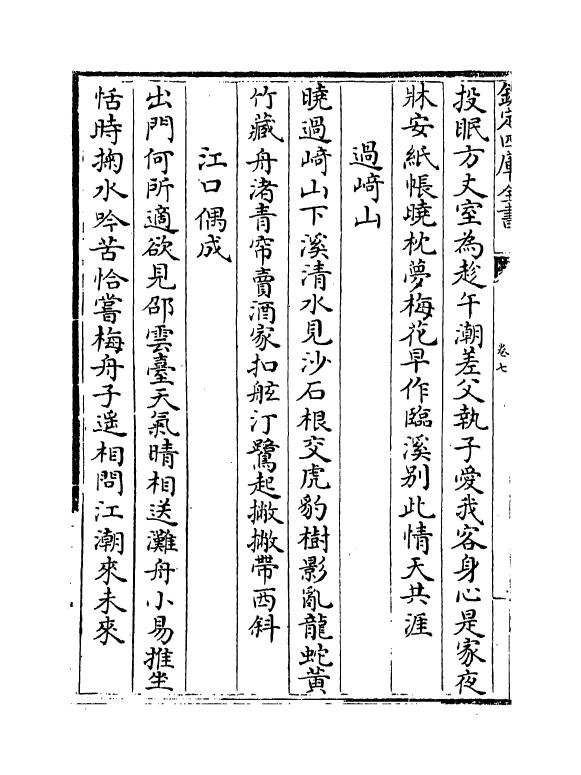 欽定四庫全書
卷七
投眠方丈室為趁午潮差父執子愛我客身心是家夜
牀安紙帳曉枕夢梅花早作臨溪别此情天共涯
過崎山
曉過崎山下溪清水見沙石根交虎豹樹影亂龍蛇黄
竹藏舟渚青帘賣酒家扣舷汀鷺起撇撇帶西斜
江口偶成
出門何所適欲見邵雲臺天氣晴相送灘舟小易推坐
恬時掬水吟苦恰嘗梅舟子遥相問江潮來未來